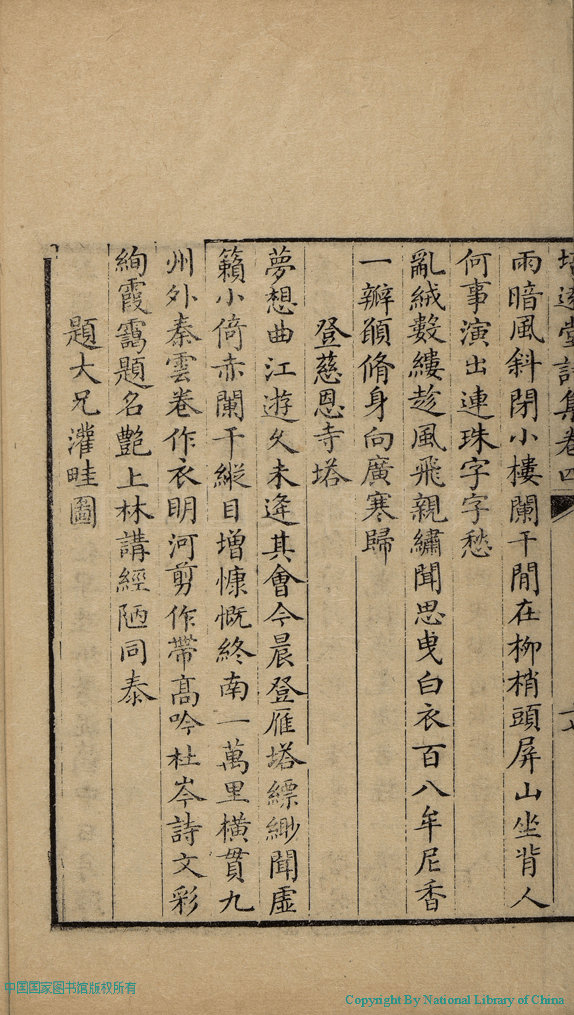 培遠堂詩集卷四
雨暗風斜閉小樓闌干閒在柳梢頭屏山坐背人
何事演出連珠字字愁
亂絨數縷趁風飛親繡聞思曳白衣百八牟尼香
一瓣脩身向廣寒歸
登慈恩寺塔
夢想曲江遊久未逢其會今晨登雁塔縹緲聞虛
籟小倚赤闌干縱目增慷慨終南一萬里橫貫九
州外秦雲卷作衣明河剪作帶高吟杜岑詩文彩
絢霞靄題名艷上林講經陋同泰
題大兄灌畦圖
中国国家图书馆版权所有
Copyright By National Library of China